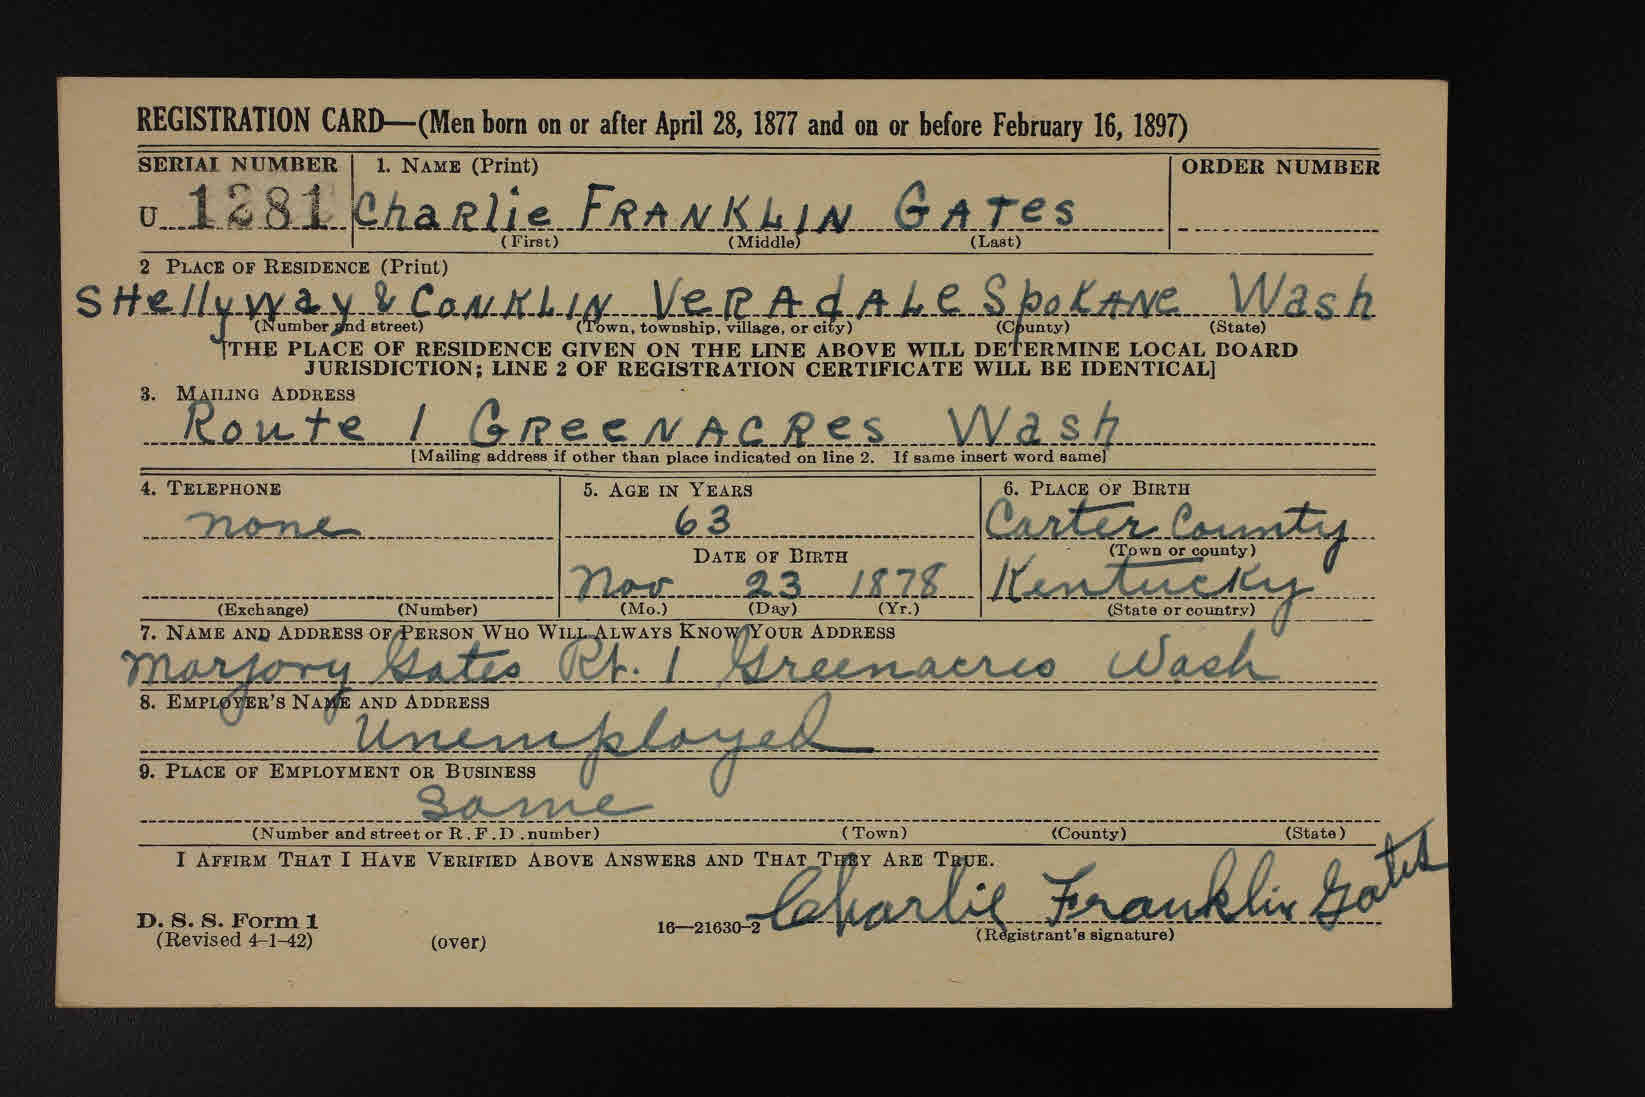 REGISTRATION CARD—(Men born on or after April 28, 1877 and on or before February 16, 1897)
SERIAL NUMBER 1. NAME (Print) ORDER NUMBER
U 1281 Charlie FRANKLIN GATes
(First) (Middle) (Last)
2 PLACE OF RESIDENCE (Print)
SHellyway & CONKLIN VeRAdALe SpoKANe Wash
(Number and street) (Town, township, village, or city) (County) (State)
[THE PLACE OF RESIDENCE GIVEN ON THE LINE ABOVE WILL DETERMINE LOCAL BOARD
JURISDICTION; LINE 2 OF REGISTRATION CERTIFICATE WILL BE IDENTICAL]
3. MAILING ADDRESS
Route 1 GReeNACRes Wash
[Mailing address if other than place indicated on line 2. If same insert word same]
4. TELEPHONE 5. AGE IN YEARS 6. PLACE OF BIRTH
none 63 Carter County
DATE OF BIRTH (Town or county)
Nov 23 1878 Kentucky
(Exchange) (Number) (Mo.) (Day) (Yr.) (State or country)
7. NAME AND ADDRESS OF PERSON WHO WILL ALWAYS KNOW YOUR ADDRESS
Marjory Gates Rt. 1 Greenacres Wash
8. EMPLOYER'S NAME AND ADDRESS
Unemployed
9. PLACE OF EMPLOYMENT OR BUSINESS
Same
(Number and street or R.F.D. number) (Town) (County) (State)
I AFFIRM THAT I HAVE VERIFIED ABOVE ANSWERS AND THAT THEY ARE TRUE.
Charlie Franklin Gates
D. S. S. Form 1 16—21630-2 (Registrant's signature)
(Revised 4-1-42) (over)